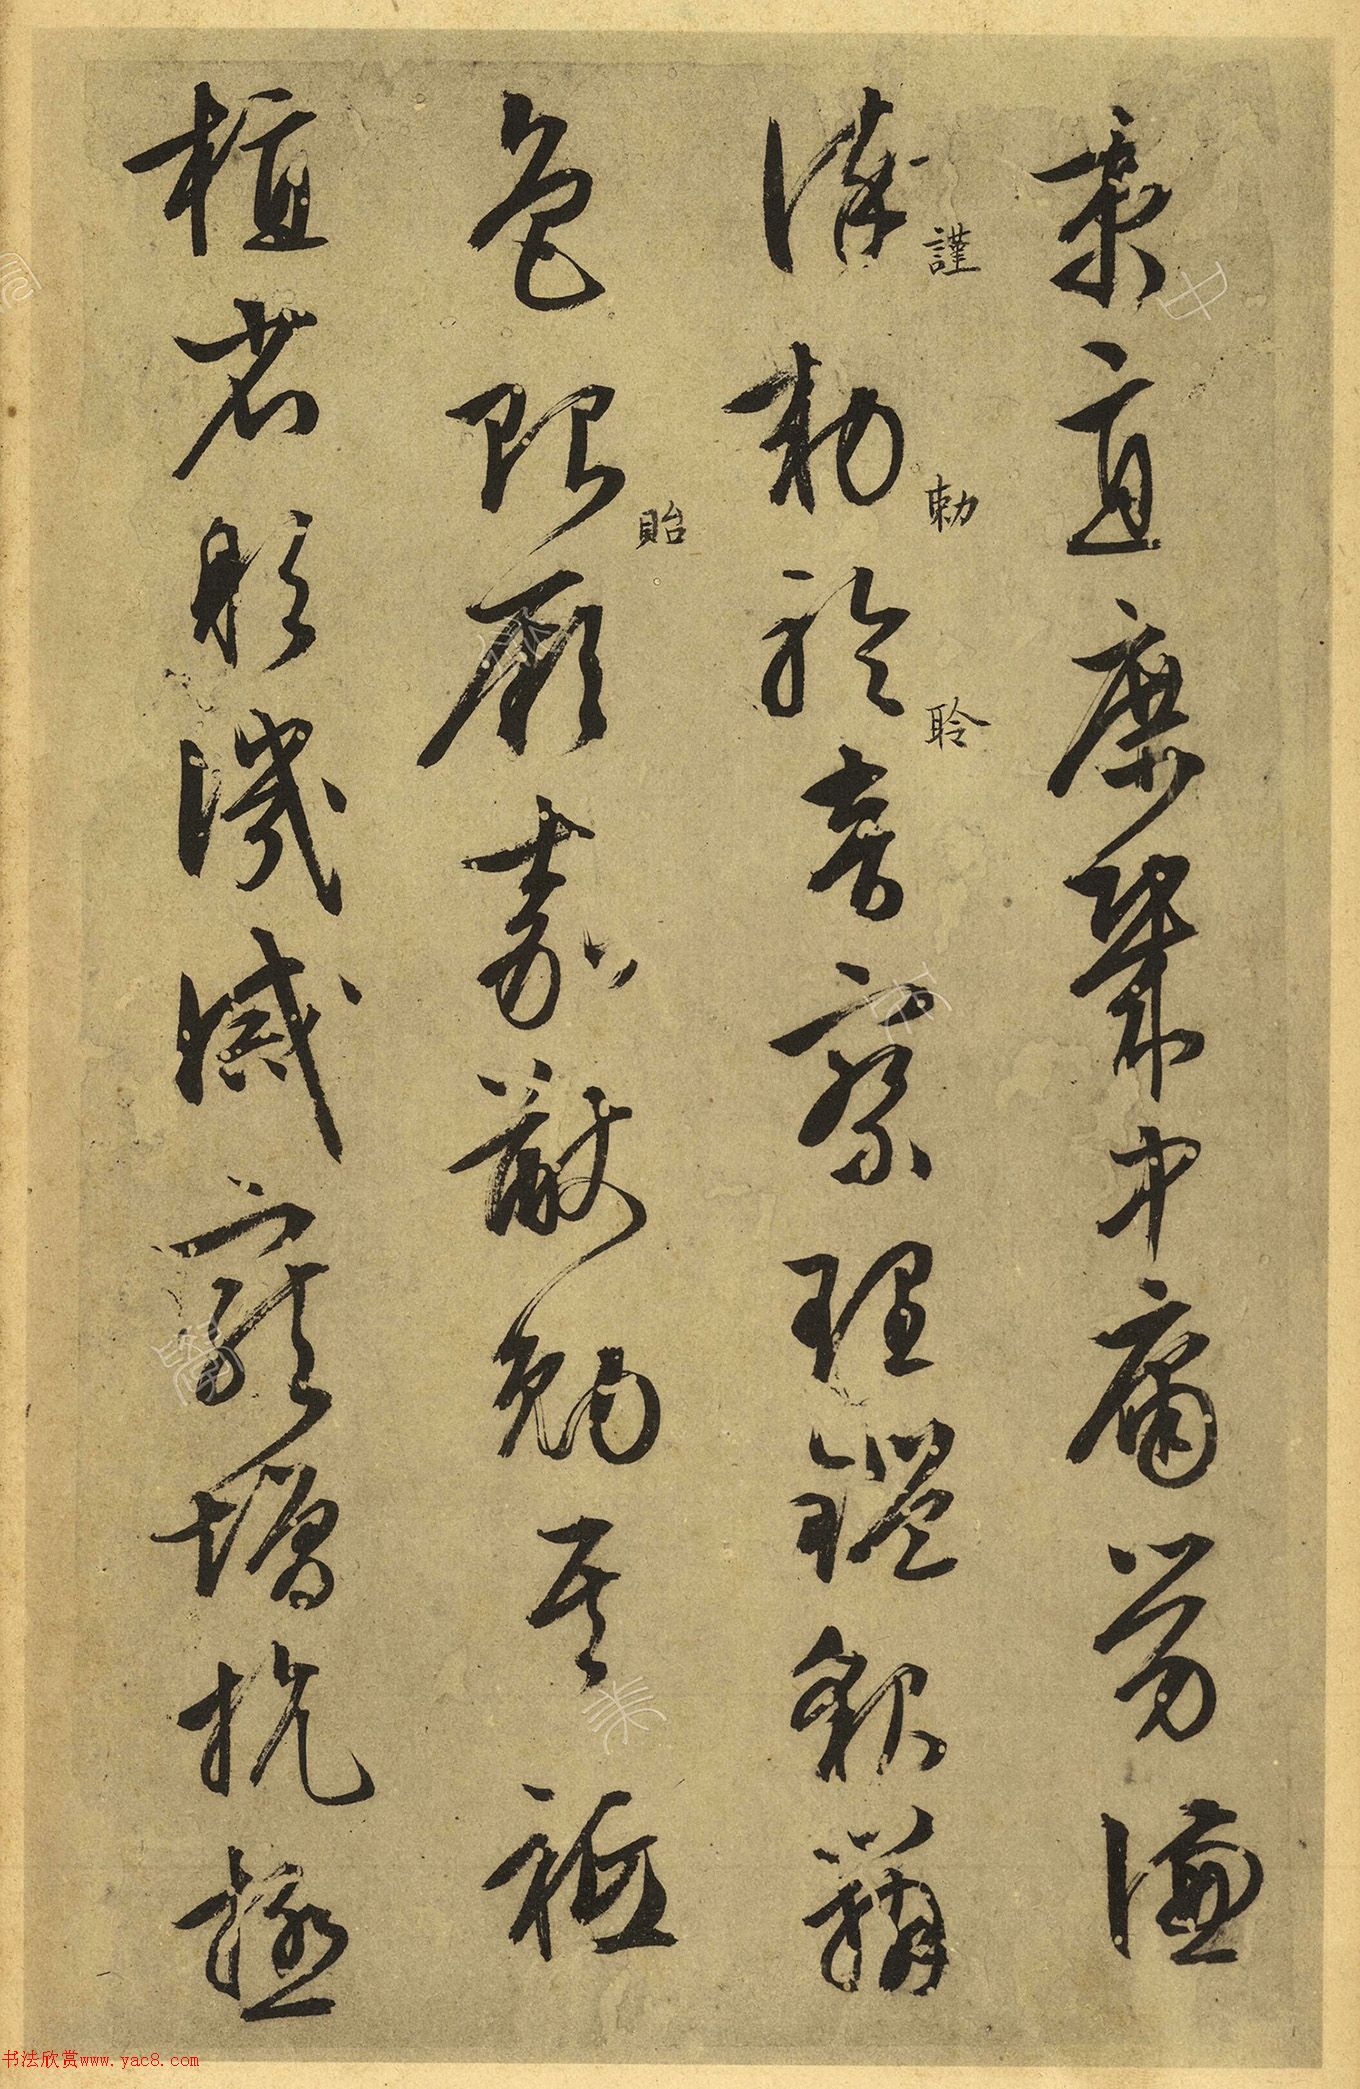 秉直庶幾中庸勞謙
謹勅聆音察理鑑貌辨
謹
勅
聆
色貽厥嘉猷勉其祗
貽
植省躬譏誡寵增抗極
书法欣赏www.yac8.com